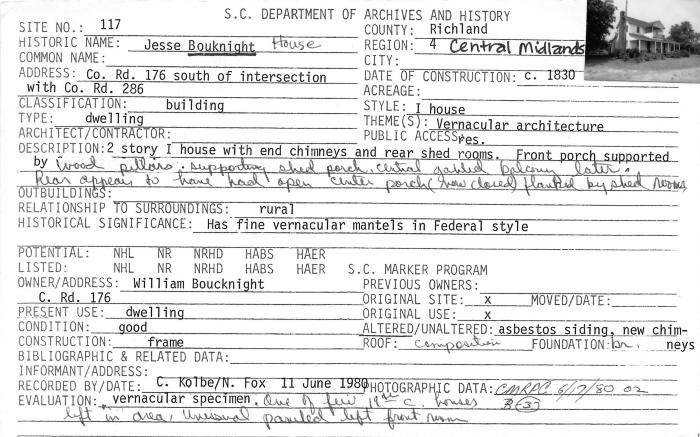 S.C. DEPARTMENT OF ARCHIVES AND HISTORY
SITE NO.: 117 COUNTY: Richland
HISTORIC NAME: Jesse Bouknight House REGION: 4 Central Midlands
COMMON NAME: CITY:
ADDRESS: Co. Rd. 176 south of intersection DATE OF CONSTRUCTION: c. 1830
with Co. Rd. 286 ACREAGE:
CLASSIFICATION: building STYLE: I house
TYPE: dwelling THEME(S): Vernacular architecture
ARCHITECT/CONTRACTOR: PUBLIC ACCESS: res.
DESCRIPTION: 2 story I house with end chimneys and rear shed rooms. Front porch supported
by wood pillars supporting shed porch. central gabled balcony later.
Rear appears to have had open center porch (now closed) flanked by shed rooms
OUTBUILDINGS:
RELATIONSHIP TO SURROUNDINGS: rural
HISTORICAL SIGNIFICANCE: Has fine vernacular mantels in Federal style
POTENTIAL: NHL NR NRHD HABS HAER
LISTED: NHL NR NRHD HABS HAER S.C. MARKER PROGRAM
OWNER/ADDRESS: William Boucknight PREVIOUS OWNERS:
C. Rd. 176 ORIGINAL SITE: x MOVED/DATE:
PRESENT USE: dwelling ORIGINAL USE: x
CONDITION: good ALTERED/UNALTERED: asbestos siding, new chim-
CONSTRUCTION: frame ROOF: composition FOUNDATION: br. neys
BIBLIOGRAPHIC & RELATED DATA:
INFORMANT/ADDRESS:
RECORDED BY/DATE: C. Kolbe/N. Fox 11 June 1980 PHOTOGRAPHIC DATA: CMRPC 6/17/80 02
EVALUATION: vernacular specimen. One of few 19th c. houses R-33
left in area, Unusual paneled left front room